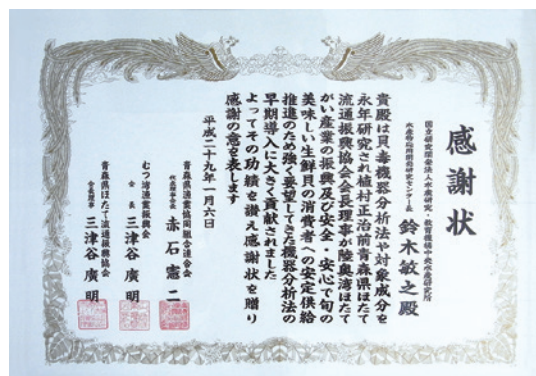 感謝状
国立研究開発法人水産研究・教育機構中央水産研究所
水産物応用開発研究センター長
鈴木敏之殿
貴殿は貝毒機器分析法や対象成分を
永年研究され植村正治前青森県ほたて
流通振興協会会長理事が陸奥湾ほたて
がい産業の振興及び安全・安心で旬の
美味しい生鮮貝の消費者への安定供給
推進のため強く要望してきた機器分析法の
早期導入に大きく貢献されました
よってその功績を讃え感謝状を贈り
感謝の意を表します
平成二十九年一月六日
青森県漁業協同組合連合会
代表理事会長
赤石憲二
むつ湾漁業振興会
会長
三津谷廣明
青森県ほたて流通振興協会
会長理事
三津谷廣明